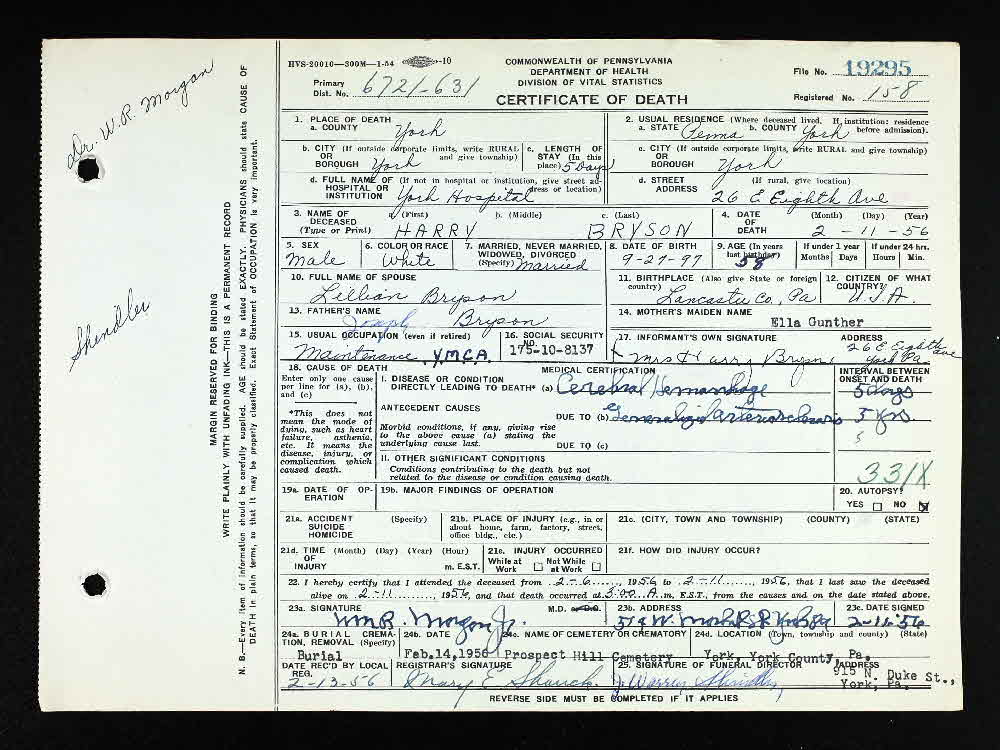 Dr. W.R. Morgan
Shindler
MARGIN RESERVED FOR BINDING
WRITE PLAINLY WITH UNFADING INK—THIS IS A PERMANENT RECORD
N. B.—Every item of information should be carefully supplied. AGE should be stated EXACTLY. PHYSICIANS should state CAUSE OF
DEATH in plain terms, so that it may be properly classified. Exact Statement of OCCUPATION is very important.
HVS-20010—300M—1-54 10
COMMONWEALTH OF PENNSYLVANIA
DEPARTMENT OF HEALTH
DIVISION OF VITAL STATISTICS
CERTIFICATE OF DEATH
Primary Dist. No. 6721-631
File No. 19295
Registered No. 158
1. PLACE OF DEATH
a. COUNTY York
2. USUAL RESIDENCE (Where deceased lived. If institution: residence before admission).
a. STATE Penna b. COUNTY York
b. CITY (If outside corporate limits, write RURAL and give township) OR BOROUGH York
c. LENGTH OF STAY (In this place) 5 Days
c. CITY (If outside corporate limits, write RURAL and give township) OR BOROUGH York
d. FULL NAME OF (If not in hospital or institution, give street address or location) HOSPITAL OR INSTITUTION York Hospital
d. STREET ADDRESS (If rural, give location) 26 E Eighth Ave
3. NAME OF DECEASED (Type or Print) a. (First) b. (Middle) c. (Last)
HARRY BRYSON
4. DATE OF DEATH (Month) (Day) (Year)
2 - 11 - 56
5. SEX Male
6. COLOR OR RACE White
7. MARRIED, NEVER MARRIED, WIDOWED, DIVORCED (Specify) Married
8. DATE OF BIRTH 9-27-97
9. AGE (In years last birthday) 58
If under 1 year Months Days
If under 24 hrs. Hours Min.
10. FULL NAME OF SPOUSE Lillian Bryson
11. BIRTHPLACE (Also give State or foreign country) Lancaster Co, Pa
12. CITIZEN OF WHAT COUNTRY? U.S.A.
13. FATHER'S NAME Joseph Bryson
14. MOTHER'S MAIDEN NAME Ella Gunther
15. USUAL OCCUPATION (even if retired) Maintenance, Y.M.C.A.
16. SOCIAL SECURITY NO. 175-10-8137
17. INFORMANT'S OWN SIGNATURE Mrs Harry Bryson
ADDRESS 26 E Eighth Ave York Pa.
18. CAUSE OF DEATH
Enter only one cause per line for (a), (b), and (c)
*This does not mean the mode of dying, such as heart failure, asthenia, etc. It means the disease, injury, or complication which caused death.
MEDICAL CERTIFICATION
INTERVAL BETWEEN ONSET AND DEATH
I. DISEASE OR CONDITION DIRECTLY LEADING TO DEATH* (a) Cerebral Hemorrhage 5 days
ANTECEDENT CAUSES
Morbid conditions, if any, giving rise to the above cause (a) stating the underlying cause last.
DUE TO (b) Generalized arteriosclerosis 5 yrs
DUE TO (c)
II. OTHER SIGNIFICANT CONDITIONS
Conditions contributing to the death but not related to the disease or condition causing death.
331X
19a. DATE OF OPERATION
19b. MAJOR FINDINGS OF OPERATION
20. AUTOPSY?
YES NO
21a. ACCIDENT SUICIDE HOMICIDE (Specify)
21b. PLACE OF INJURY (e.g., in or about home, farm, factory, street, office bldg., etc.)
21c. (CITY, TOWN AND TOWNSHIP) (COUNTY) (STATE)
21d. TIME OF INJURY (Month) (Day) (Year) (Hour) m. E.S.T.
21e. INJURY OCCURRED While at Work Not While at Work
21f. HOW DID INJURY OCCUR?
22. I hereby certify that I attended the deceased from 2-6, 1956 to 2-11, 1956, that I last saw the deceased
alive on 2-11, 1956, and that death occurred at 3:00 A.m, E.S.T., from the causes and on the date stated above.
23a. SIGNATURE Wm R. Morgan Jr. M.D. or D.O.
23b. ADDRESS
23c. DATE SIGNED
24a. BURIAL CREMATION, REMOVAL (Specify) Burial
24b. DATE Feb.14,1956
24c. NAME OF CEMETERY OR CREMATORY Prospect Hill Cemetery
24d. LOCATION (Town, township and county) (State) York, York County, Pa.
DATE REC'D BY LOCAL REG. 2-13-56
REGISTRAR'S SIGNATURE Mary E Shauck
25. SIGNATURE OF FUNERAL DIRECTOR J. Warren Shindler
ADDRESS 915 N. Duke St., York, Pa.
REVERSE SIDE MUST BE COMPLETED IF IT APPLIES